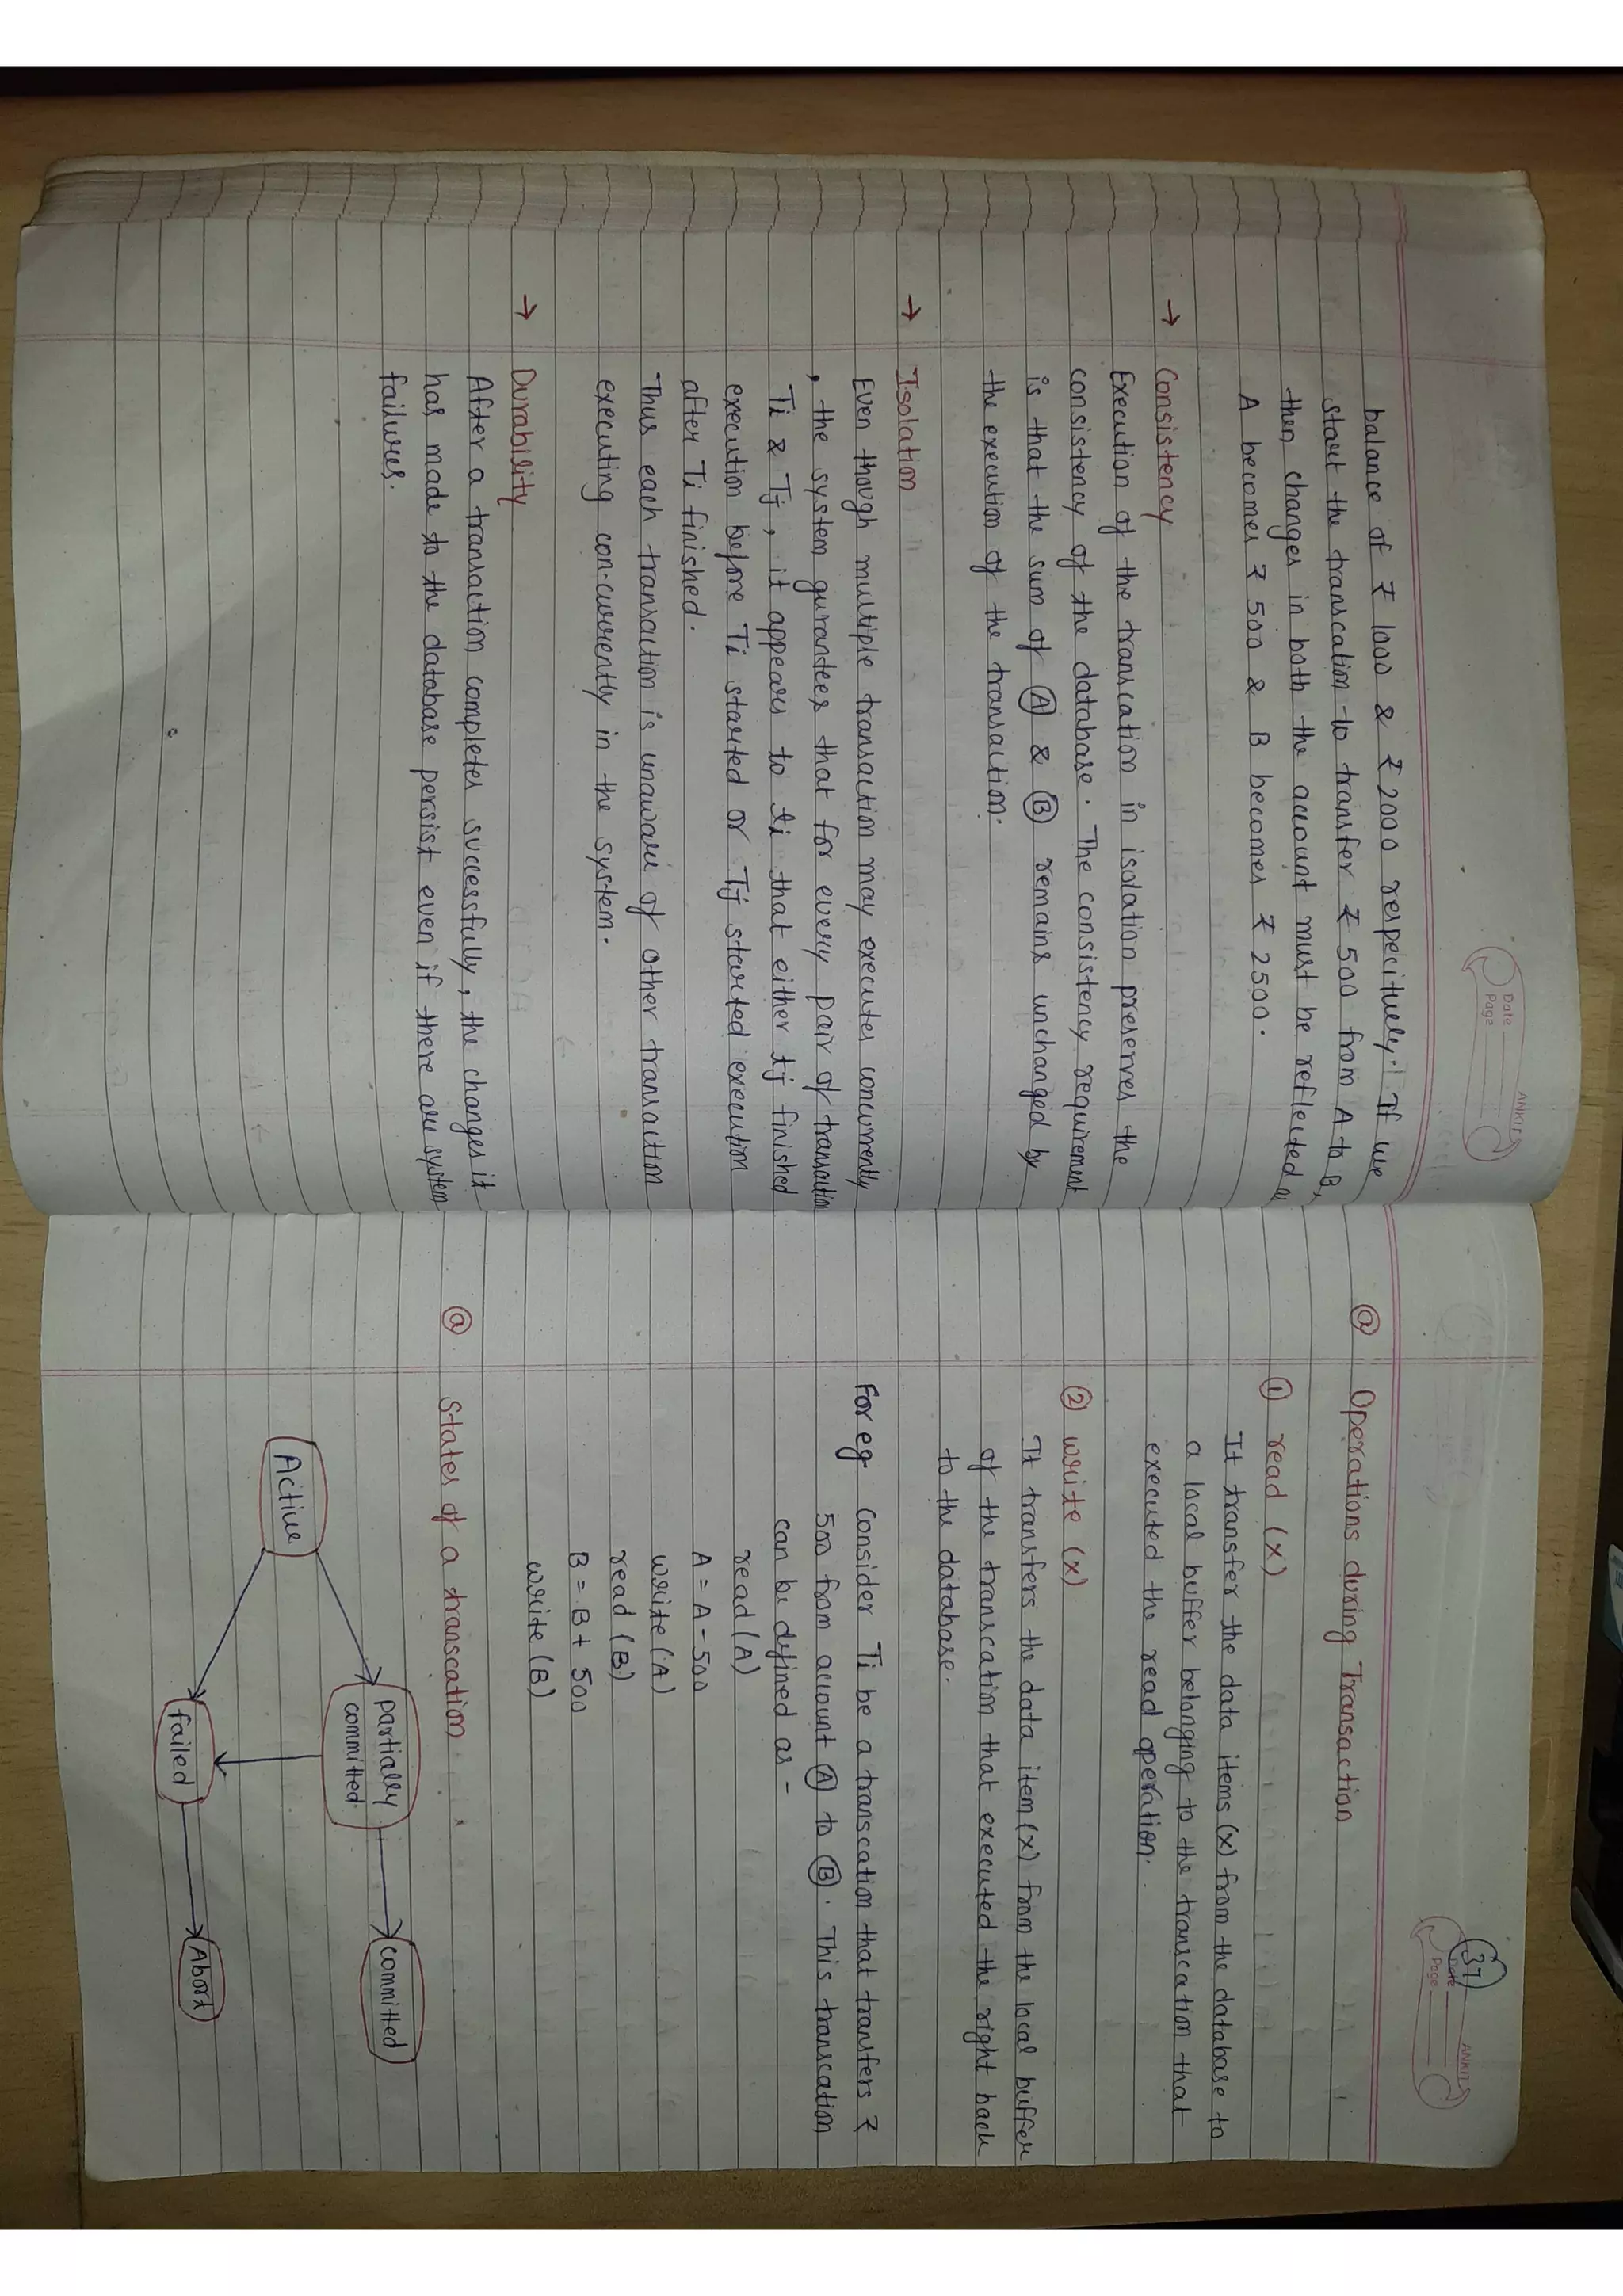 Date
Page
ANKIT
balance of ₹ 1000 & ₹ 2000 respecituely. If we
start the transcation to transfer ₹ 500 from A to B,
then changes in both the account must be reflected
A becomes ₹ 500 & B becomes ₹ 2500.
→ Consistency
Execution of the transcation in isolation preserves the
consistency of the database. The consistency requirement
is that the sum of Ⓐ & Ⓑ remains unchanged by
the execution of the transaction.
→ Isolation
Even though multiple transaction may executes concurrently
, the system gurantees that for every pair of transaction
Ti & Tj, it appears to ti that either tj finished
execution before Ti started or Tj started execution
after Ti finished.
Thus each transaction is unaware of other transaction
executing con-currently in the system.
→ Durability
After a transaction completes successfully, the changes it
has made to the database persist even if there are system
failures.
37
Date
Page
ANKIT
@ Operations during Transaction
① read (x)
It transfer the data items (x) from the database to
a local buffer belonging to the transcation that
executed the read operation.
② write (x)
It transfers the data item (x) from the local buffer
of the transcation that executed the right back
to the database.
For eg Consider Ti be a transcation that transfers ₹
500 from account Ⓐ to Ⓑ. This transcation
can be defined as -
read (A)
A = A - 500
write (A)
read (B)
B = B + 500
write (B)
@ States of a transcation
partially
committed
committed
Active
failed
Abort